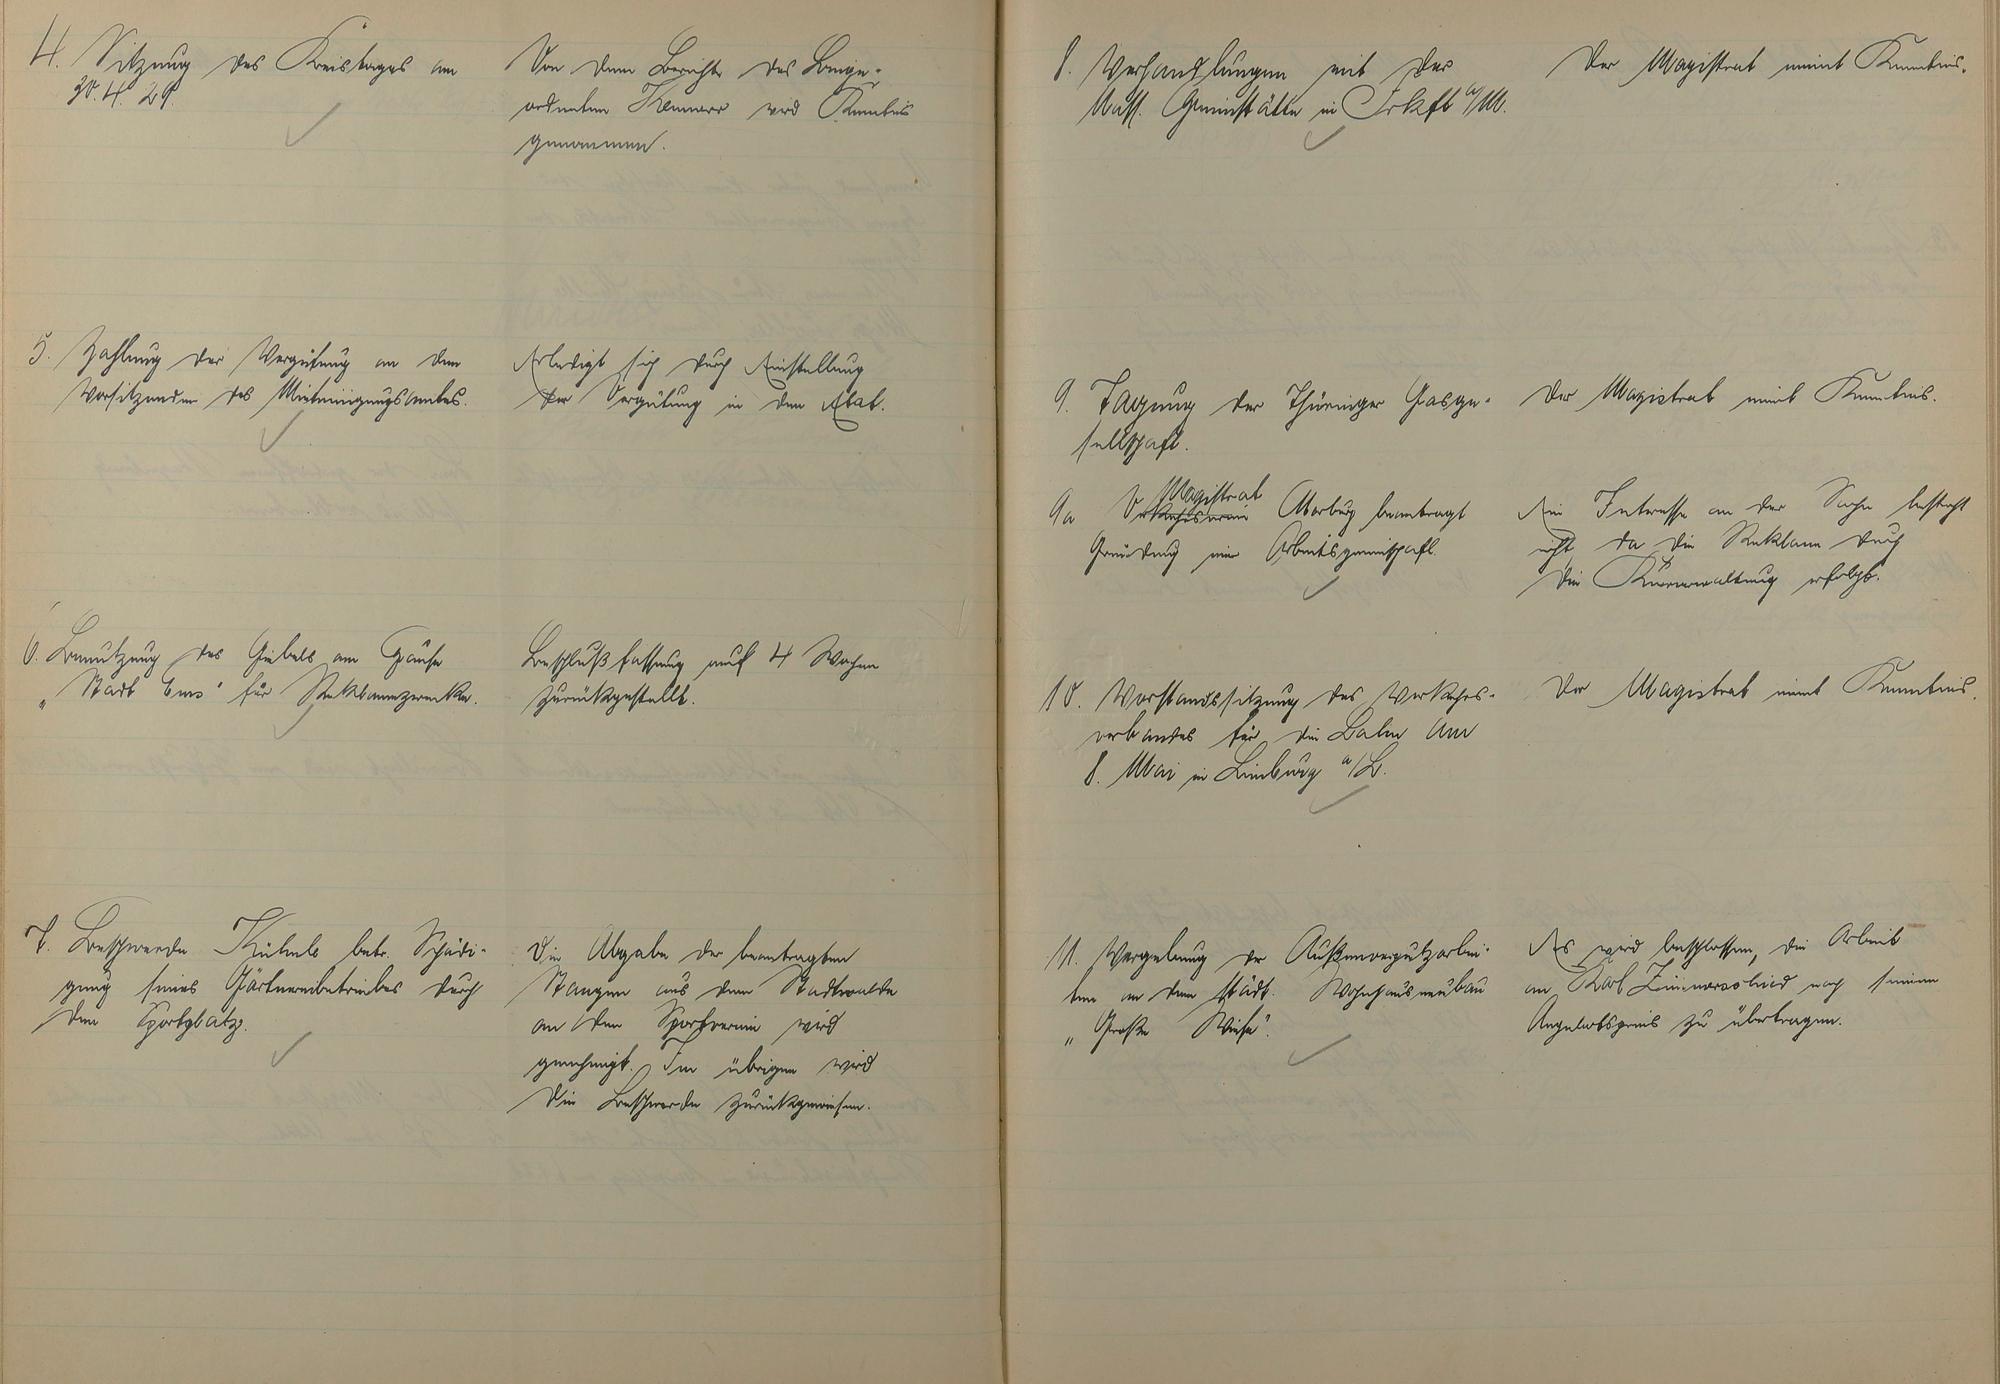 4. Sitzung des Kreistages am
30. 4. 29.
Von dem Berichte des Beige-
ordneten Klemmer wird Kenntnis
genommen.
5. Zahlung der Vergütung an den
Vorsitzenden des Mieteinigungsamtes.
Erledigt sich durch Einstellung
der Vergütung in den Etat.
6. Benutzung des Giebels am Hause
„Stadt Ems" für Reklamezwecke.
Beschlußfassung auf 4 Wochen
zurückgestellt.
7. Beschwerde betr. Schädi-
gung seines Gärtnereibetriebes durch
den Sportplatz.
Die Abgabe der beantragten
Stangen aus dem Stadtwalde
an den Sportverein wird
genehmigt. Im übrigen wird
die Beschwerde zurückgewiesen.
8. Verhandlungen mit der
Nass. Heimstätte in Frkft a/M.
Der Magistrat nimmt Kenntnis.
9. Tagung der Thüringer Gasge-
sellschaft.
Der Magistrat nimmt Kenntnis.
9a Magistrat
Verkehrsverein Marburg beantragt
Gründung einer Arbeitsgemeinschaft.
Ein Interesse an der Sache besteht
nicht, da die Reklame durch
die Kurverwaltung erfolgt.
10. Vorstandssitzung des Verkehrs-
verbandes für die Lahn am
8. Mai in Limburg a/L.
Der Magistrat nimmt Kenntnis.
11. Vergebung der Außenverputzarbei-
ten an dem städt. Wohnhausneubau
„Große Wiese".
Es wird beschlossen, die Arbeit
an Karl Zimmerschied nach seinem
Angebotspreis zu übertragen.